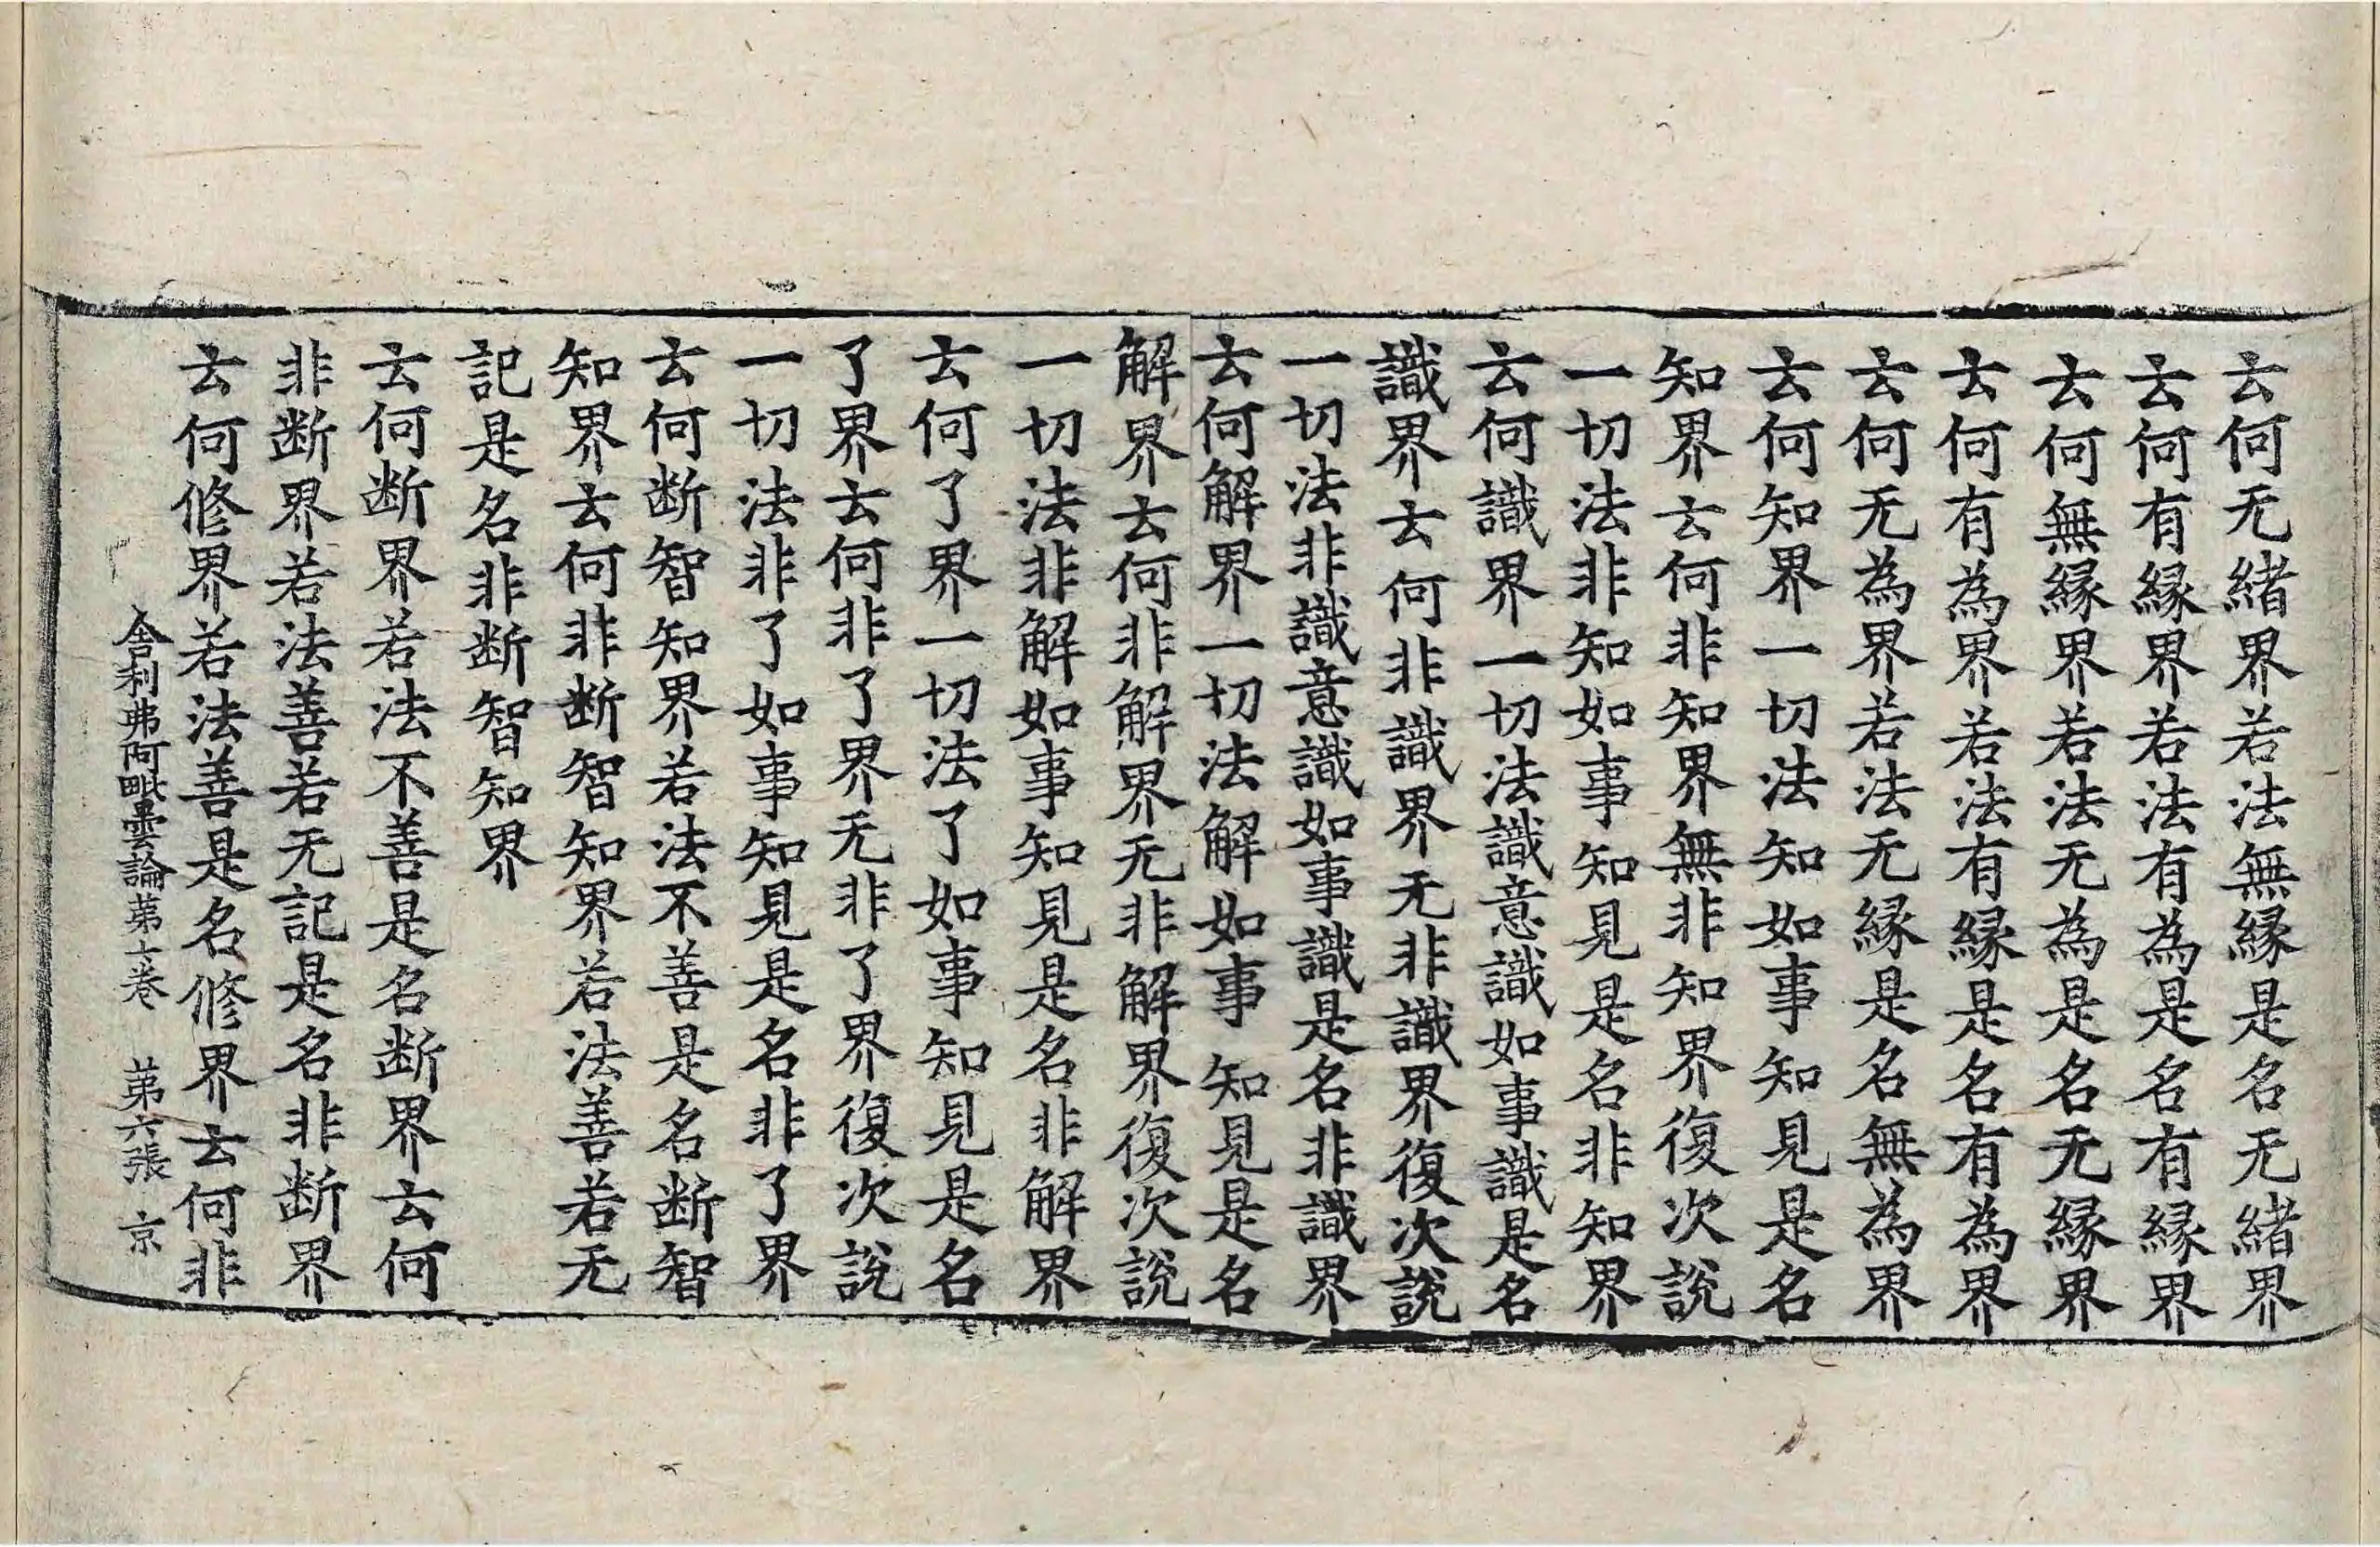 云何无緒界若法無緣是名无緒界
云何有緣界若法有為是名有緣界
云何無緣界若法无為是名无緣界
云何有為界若法有緣是名有為界
云何无為界若法无緣是名無為界
云何知界一切法知如事知見是名
知界云何非知界無非知界復次說
一切法非知如事知見是名非知界
云何識界一切法識意識如事識是名
識界云何非識界无非識界復次說
一切法非識意識如事識是名非識界
云何解界一切法解如事知見是名
解界云何非解界无非解界復次說
一切法非解如事知見是名非解界
云何了界一切法了如事知見是名
了界云何非了界无非了界復次說
一切法非了如事知見是名非了界
云何断智知界若法不善是名断智
知界云何非断智知界若法善若无
記是名非断智知界
云何断界若法不善是名断界云何
非断界若法善若无記是名非断界
云何修界若法善是名修界云何非
舎利弗阿毗曇論苐七卷 苐六張 京